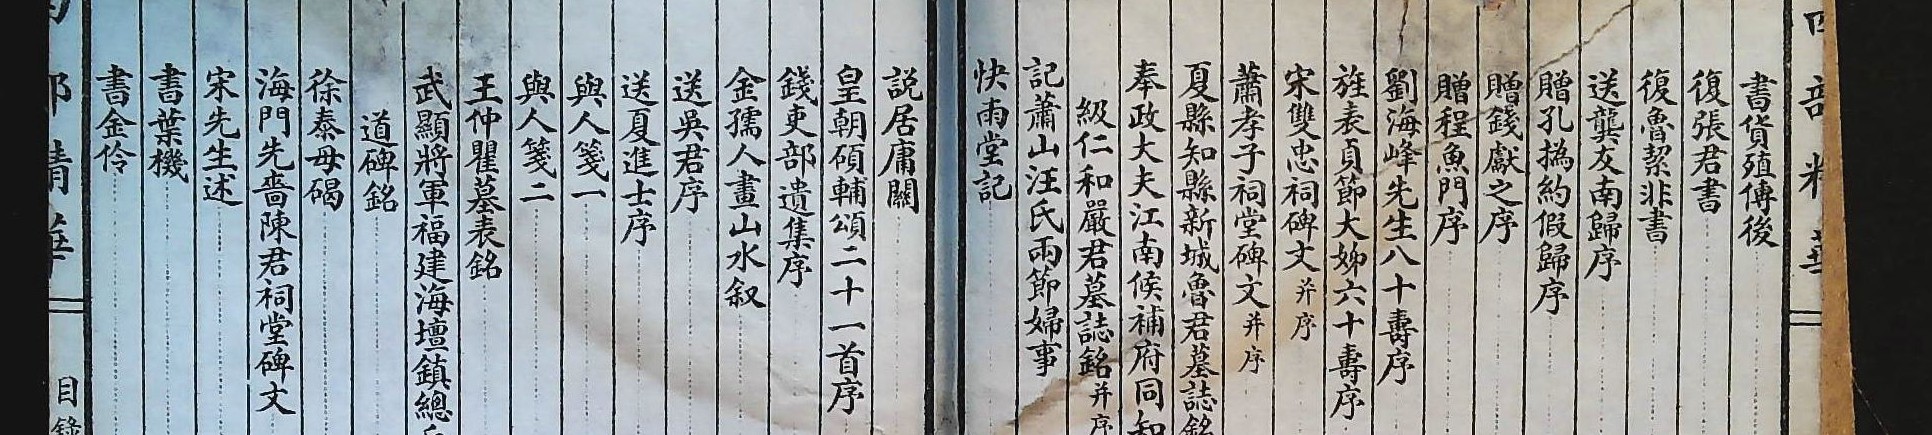 四部精華
書貨殖傳後
復張君書
復魯絜非書
送龔友南歸序
贈孔撝約假歸序
贈錢獻之序
贈程魚門序
劉海峰先生八十壽序
旌表貞節大姊六十壽序
宋雙忠祠碑文并序
蕭孝子祠堂碑文并序
夏縣知縣新城魯君墓誌銘
奉政大夫江南候補府同知
級仁和嚴君墓誌銘并序
記蕭山汪氏兩節婦事
快雨堂記
說居庸關
皇朝碩輔頌二十一首序
錢吏部遺集序
金孺人畫山水叙
送吳君序
送夏進士序
與人箋一
與人箋二
王仲瞿墓表銘
武顯將軍福建海壇鎮總兵
道碑銘
徐泰母碣
海門先嗇陳君祠堂碑文
宋先生述
書葉機
書金伶
部精華
目錄